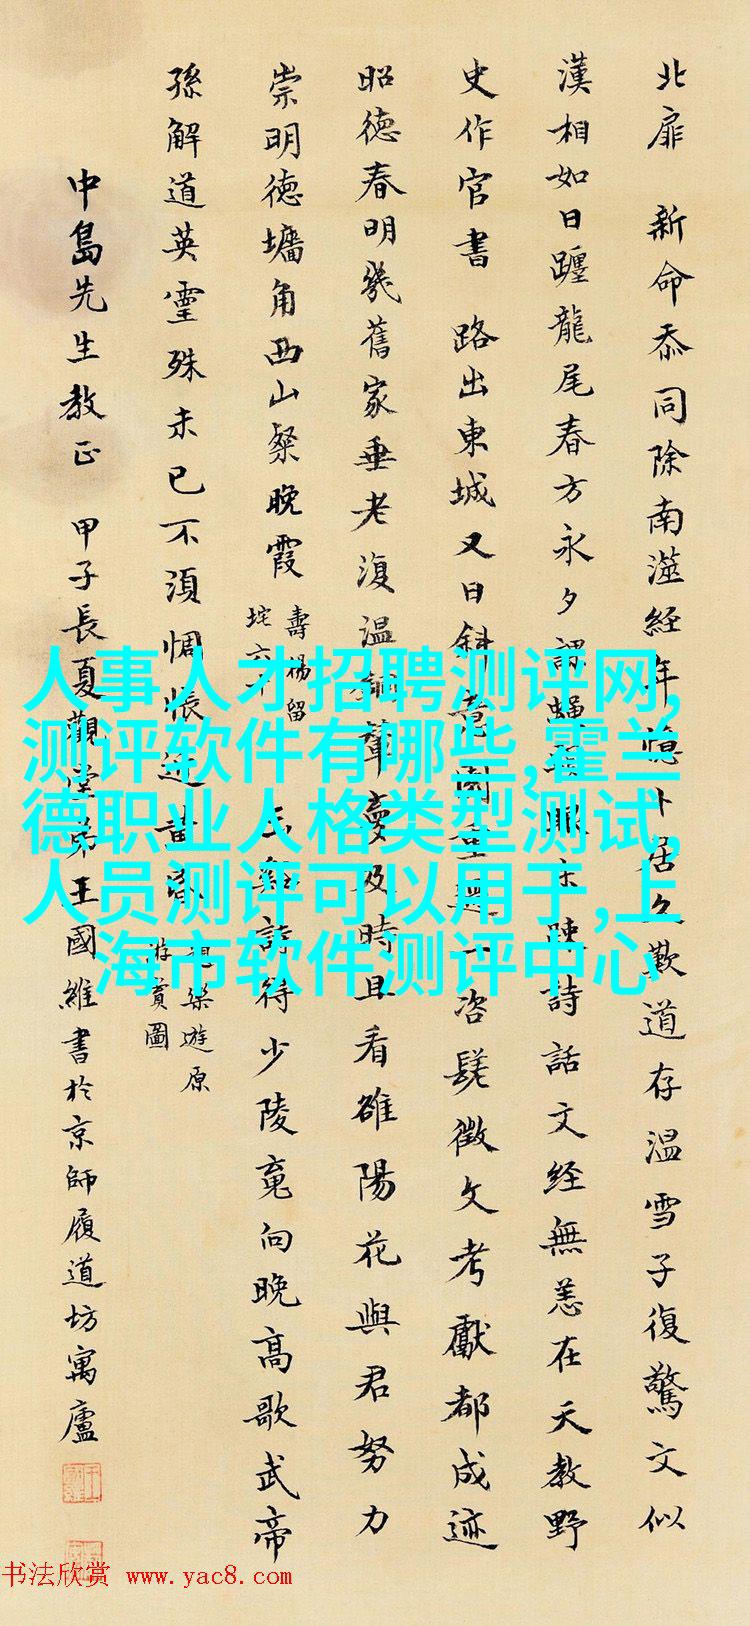 北扉 新命忝同除南澨経年
漢相如日躔龍尾春方永夕認
史作官書 路出東城又日斜
昭德春明幾舊家垂老復温
崇明德墉角西山粲晚霞
壽楊留
垞六
孫解道英靈殊未已不須惆悵
中島先生教正 甲子長夏觀堂弟王國維書於京師履道坊寓廬
卜居久歎道存温雪子復驚文似
陳詩話文経無恙在天教野
一咨髦徵文考獻都成迹
及時且看雒陽花與君努力
詩得少陵竟向晚高歌武帝
樂遊原
游賞圖
人事人才招聘测评网,
测评软件有哪些,霍兰
德职业人格类型测试,
人员测评可以用于,上
海市软件测评中心
书法欣赏 www.yac8.com